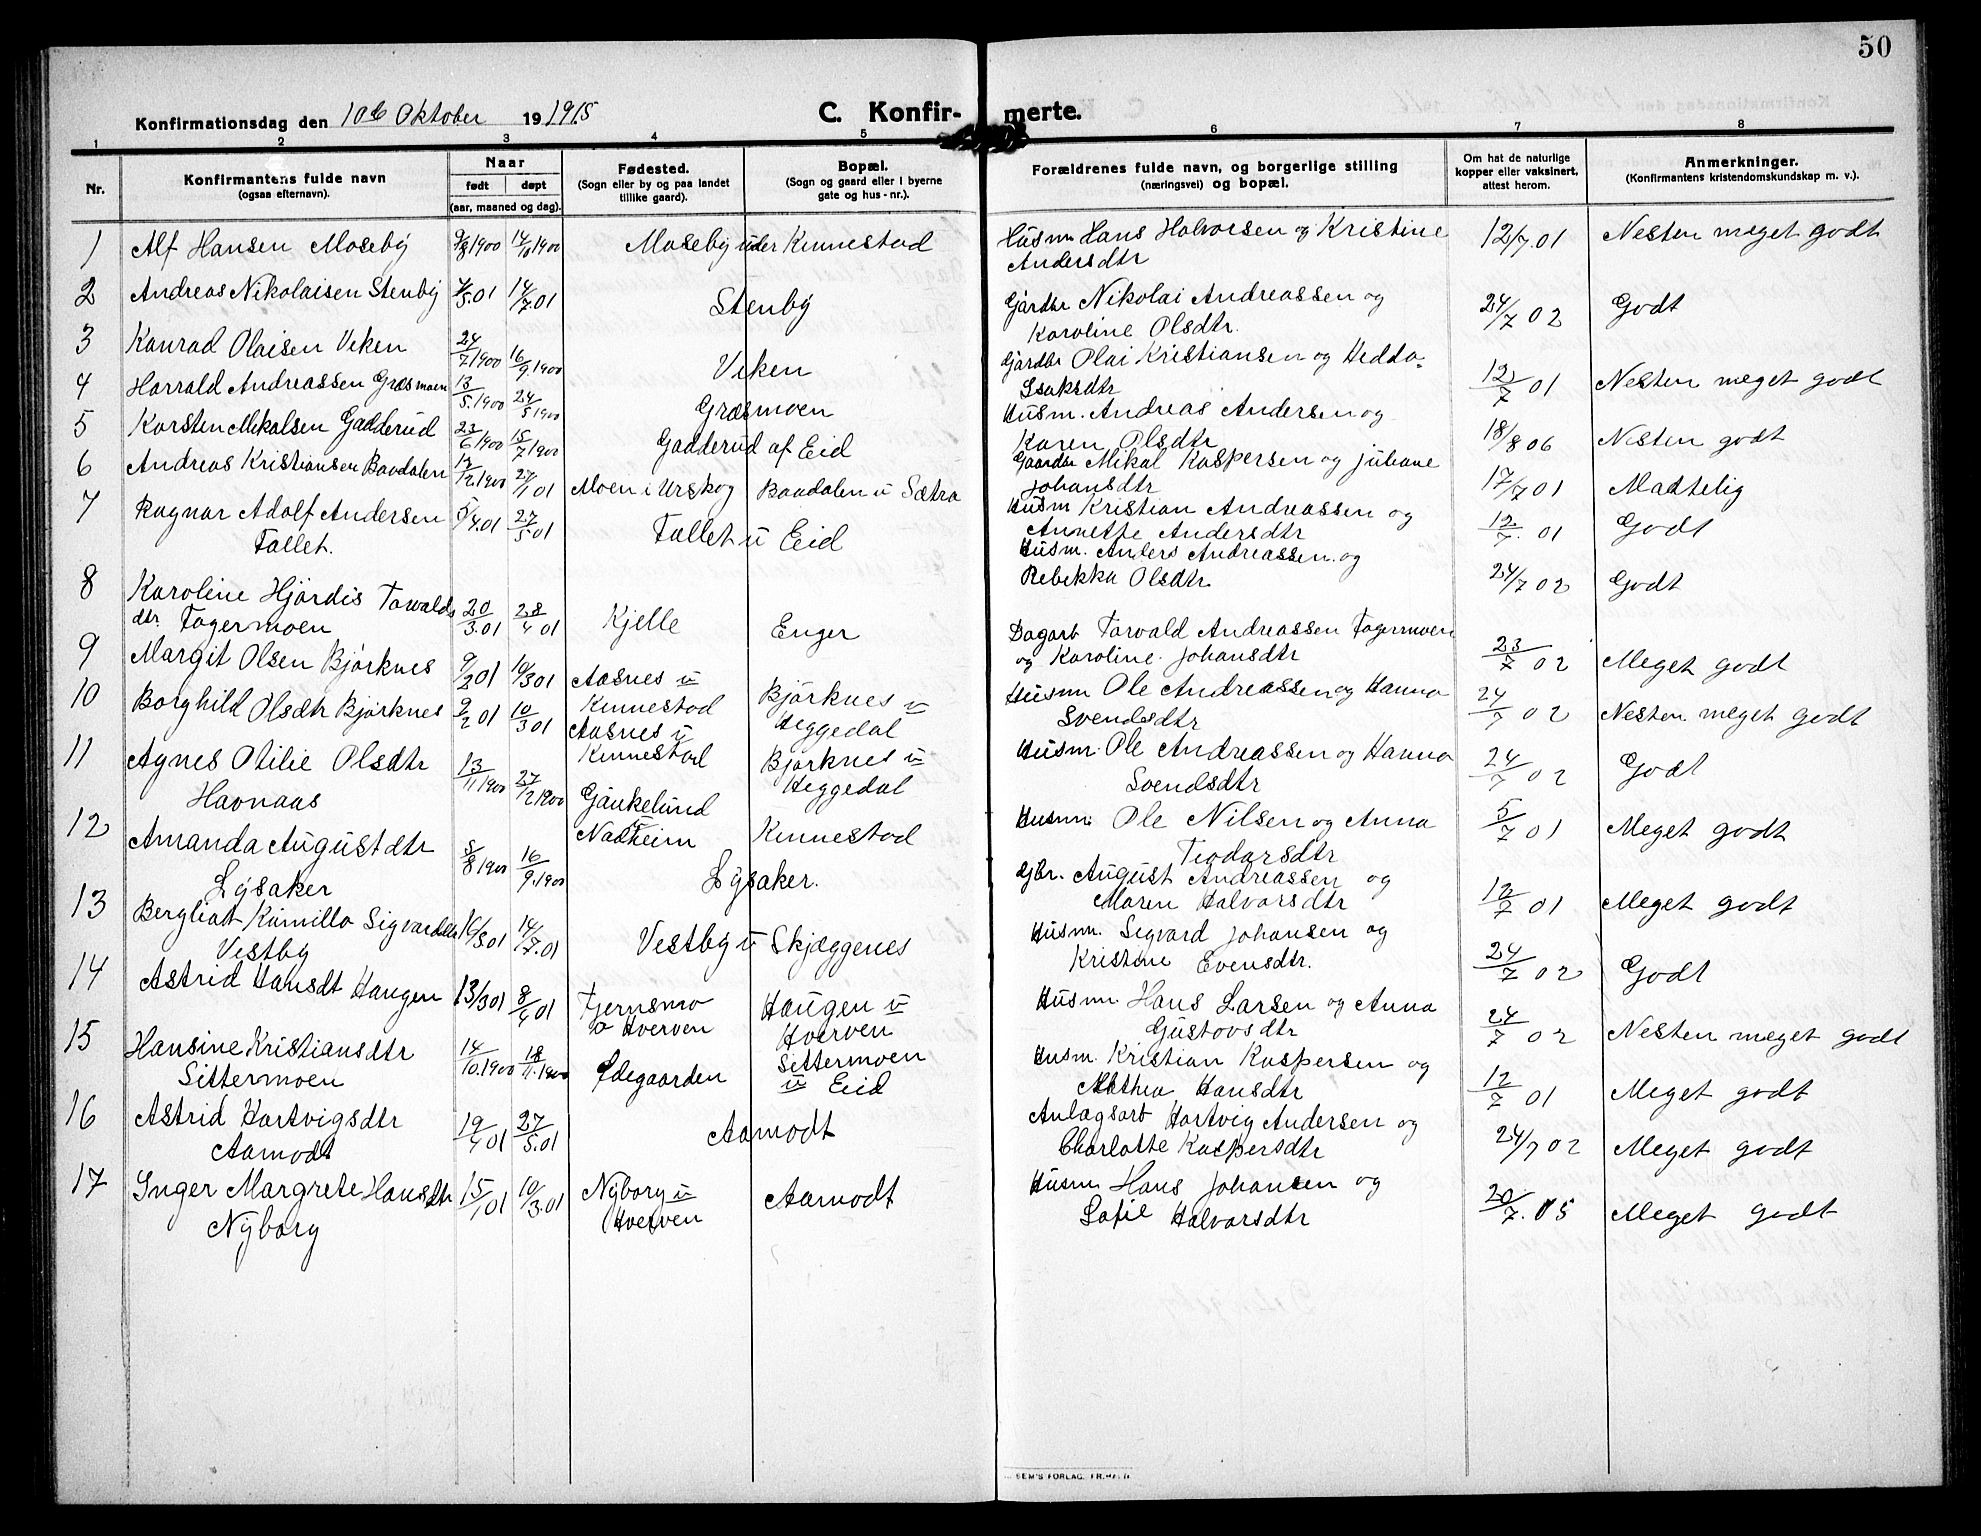 50
Konfirmationsdag den 10de Oktober 19 1915 C. Konfir- merte.
1 2 3 4 5 6 7 8
Nr.
Konfirmantens fulde navn
(ogsaa efternavn).
Naar
født døpt
(aar, maaned og dag).
Fødested.
(Sogn eller by og paa landet
tillike gaard).
Bopæl.
(Sogn og gaard eller i byerne
gate og hus-nr.).
Forældrenes fulde navn, og borgerlige stilling
(næringsvei) og bopæl.
Om hat de naturlige
kopper eller vaksinert,
attest herom.
Anmerkninger.
(Konfirmantens kristendomskundskap m. v.).
1 Alf Hansen Moseby 9/8 1900 14/10 1900 Moseby under Kinnestad Husm Hans Halvorsen og Kristine
Andersdtr 12/7.01 Nesten meget godt
2 Andreas Nikolaisen Stenby 4/5.01 14/7.01 Stenby Gårdbr Nikolai Andreassen og
Karoline Olsdtr. 24/7 02 Godt
3 Konrad Olaisen Viken 24/7 1900 16/9.1900 Viken Gårdbr Olai Kristiansen og Hedda
Isaksdtr 12/7 01 Nesten meget godt
4 Harrald Andreassen Græsmoen 13/5.1900 24/5 1900 Græsmoen Husm. Andreas Andersen og
Karen Olsdtr 18/8 06 Nesten godt
5 Karsten Mikalsen Gadderud 23/6 1900 15/7 1900 Gadderud af Eid Gaardbr Mikal Kaspersen og Juliane
Johansdtr 17/7 01 Maatelig
6 Andreas Kristiansen Baadalen 12/12 1900 27/1 01 Moen i Urskog Baadalen u Sætra Husm Kristian Andreassen og
Annette Andersdtr 12/7. 01 Godt
7 Ragnar Adolf Andersen
Fallet. 5/4.01 27/5 01 Fallet u Eid Husm. Anders Andreassen og
Rebekka Olsdtr. 24/7 02 Godt
8 Karoline Hjördis Torvalds
dtr. Fagermoen 20/3.01 28/4 01 Kjelle Enger Dagarb Torvald Andreassen Fagermoen
og Karoline Johansdtr 23/7 02 Meget godt
9 Margit Olsen Björknes 9/2 01 10/3 01 Aasnes u
Kinnestad Björknes u
Heggedal Husm Ole Andreassen og Hanna
Svendsdtr 24/7 02 Nesten meget godt
10 Borghild Olsdtr Björknes 9/2 01 10/3 01 Aasnes u
Kinnestad Björknes u
Heggedal Husm. Ole Andreassen og Hanna
Svendsdtr 24/7 02 Godt
11 Agnes Otilie Olsdtr
Havnaas 13/11 1900 27/12 1900 Gaukelund
u Nadheim Kinnestad Husm Ole Nilsen og Anna
Teodorsdtr 5/7 01 Meget godt
12 Amanda Augustdtr
Lysaker 5/8 1900 16/9.1900 Lysaker. Gbr. August Andreassen og
Maren Halvorsdtr 12/7 01 Meget godt
13 Bergliot Kamilla Sigvardsdtr
Vestby 16/3 01 14/7.01 Vestby u Skjæggenes Husm. Sigvard Johansen og
Kristine Evensdtr. 24/7 02 Godt
14 Astrid Hansdt Haugen 13/3 01 8/4 01 Tjernsmo
u Hverven Haugen u
Hverven Husm Hans Larsen og Anna
Gustavsdtr 24/7 02 Nesten meget godt
15 Hansine Kristiansdtr
Sittermoen 14/10.1900 18/11.1900 Ødegaarden Sittermoen
u Eid Husm. Kristian Kaspersen og
Mathea Hansdtr 12/7 01 Meget godt
16 Astrid Hartvigsdtr
Aamodt 19/4 01 27/5.01 Aamodt Anlægsarb Hartvig Andersen og
Charlotte Kaspersdtr 24/7 02 Meget godt
17 Inger Margrete Hansdtr
Nyborg 15/1 01 10/3.01 Nyborg u
Hverven Aamodt Husm Hans Johansen og
Sofie Halvorsdtr 20/7. 05 Meget godt
SEM'S FORLAG, FR.HALD.